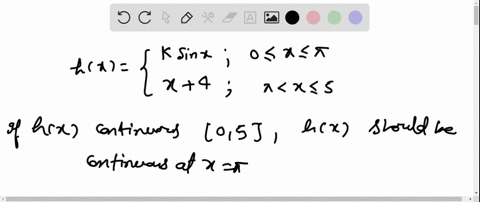 h(x) = { K sin x ; 0 ≤ x ≤ π
x + 4 ; π < x ≤ 5
If h(x) continuous [0,5], h(x) should be
continuous at x = π